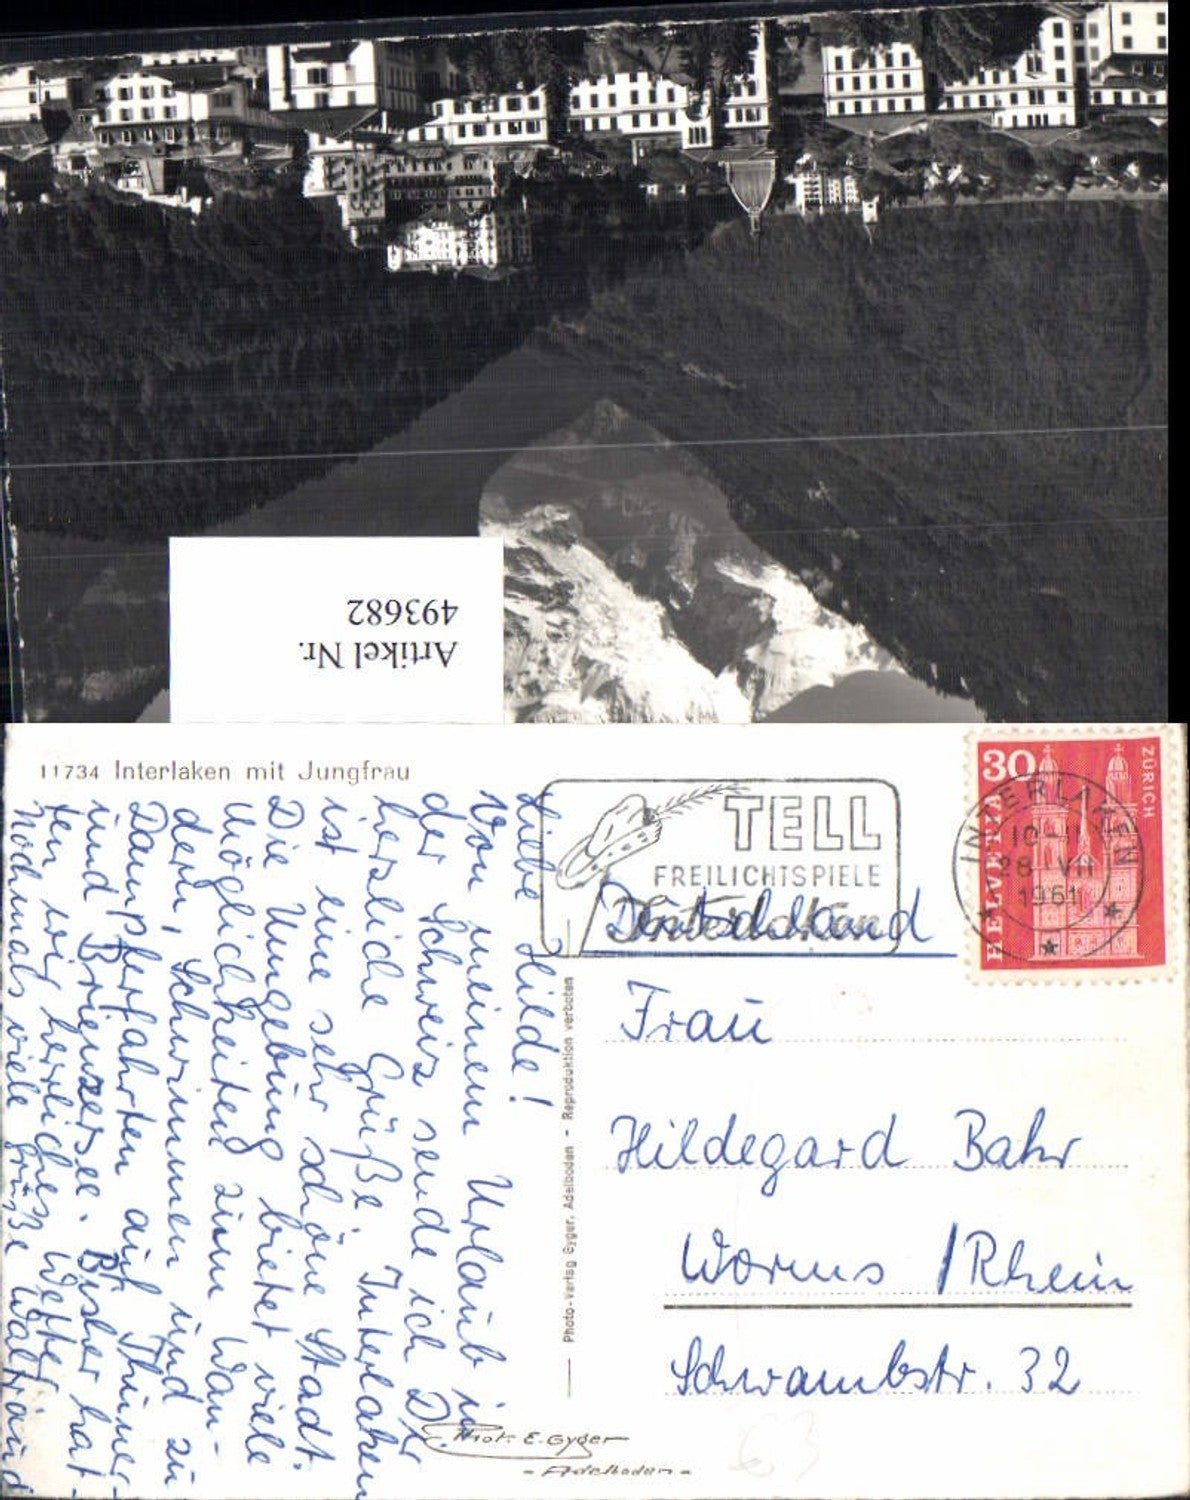 Artikel Nr.
493682
11734 Interlaken mit Jungfrau
Liebe Hilde!
Von meinem Urlaub in
der Schweiz sende ich Dir
herzliche Grüße. Interlaken
ist eine sehr schöne Stadt.
Die Umgebung bietet viele
Möglichkeiten zum Wan-
dern, Schwimmen und zu
Dampferfahrten auf Thuner-
und Brienzersee. Bisher hat-
ten wir herrliches Wetter.
Nochmals viele Grüße Waltraud
Photo-Verlag Gyger, Adelboden - Reproduktion verboten
Phot. E. Gyger
- Adelboden -
TELL
FREILICHTSPIELE
Interlaken
30
HELVETIA
ZÜRICH
INTERLAKEN
10-11
28 VII
1961
Deutschland
Frau
Hildegard Bahr
Worms /Rhein
Schwambstr. 32
63